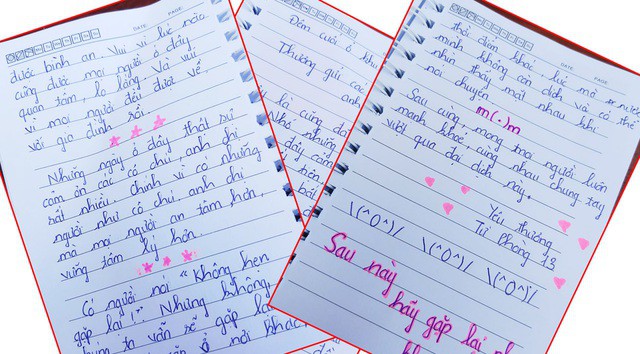 DATE
PAGE
được bình an. Vui vì lúc nào
cũng được mọi người ở đây
quan tâm, lo lắng. Và vui
vì mọi người đều được về
với gia đình
Những ngày ở đây thật sự
cảm ơn các cô chú, anh chị
rất nhiều. Chính vì có những
người như cô chú, anh chị
mà mọi người an tâm hơn
vững tâm lý hơn.
Có người nói "Không hẹn
gặp lại!" Nhưng không,
ta vẫn sẽ gặp lại
ở nơi khác
DATE
Đêm cuối ở khu
Thương gửi các
anh
là cũng
Nhớ những
đây cảm
DATE
PAGE
thời điểm khác, lúc mà nước
mình không còn dịch và có thể
nhìn thấy mặt nhau khi
nói chuyện.
m(.)m
Sau cùng, mong mọi người luôn
mạnh khoẻ, cùng nhau chung tay
vượt qua đại dịch này.
Yêu thương
Từ Phòng 13
\(^O^)/ \(^O^)/ \(^O^)/
Sau này
hãy gặp lại